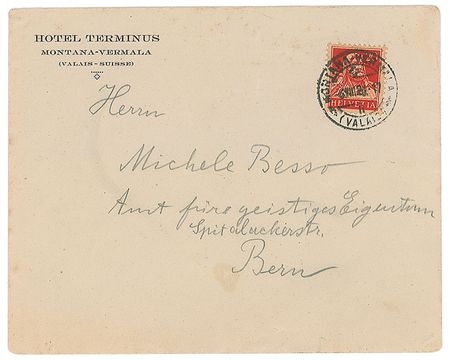 HOTEL TERMINUS
MONTANA-VERMALA
(VALAIS-SUISSE)
MONTANA-VERMALA
(VALAIS)
HELVETIA
Herrn
Michele Besso
Amt für geistiges Eigentum
Spitalackerstr.
Bern